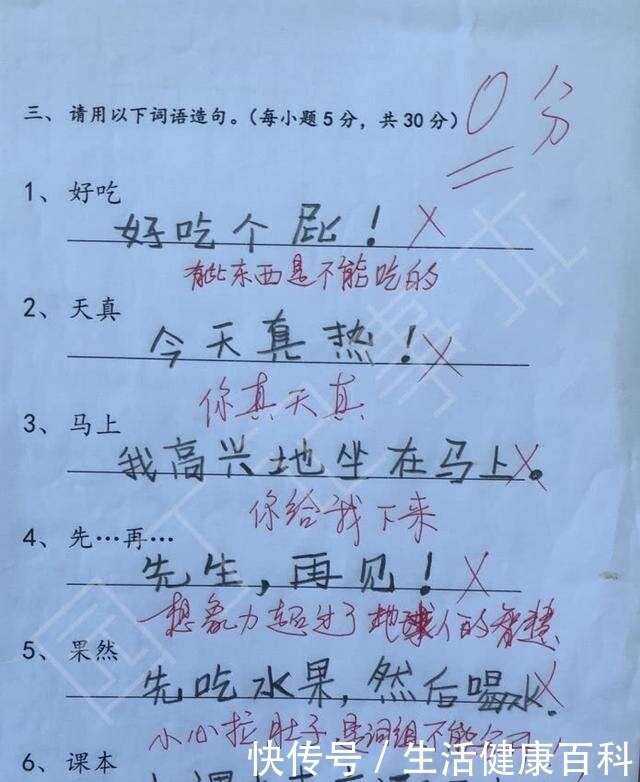 三、请用以下词语造句。（每小题5分，共30分）0分
1、好吃
好吃个屁！
有些东西是不能吃的
2、天真
今天真热！
你真天真
3、马上
我高兴地坐在马上。
你给我下来
4、先…再…
先生，再见！
想象力超过了地球人的智慧
5、果然
先吃水果，然后喝水。
小心拉肚子 是词组不能分开
6、课本
快传号/生活健康百科